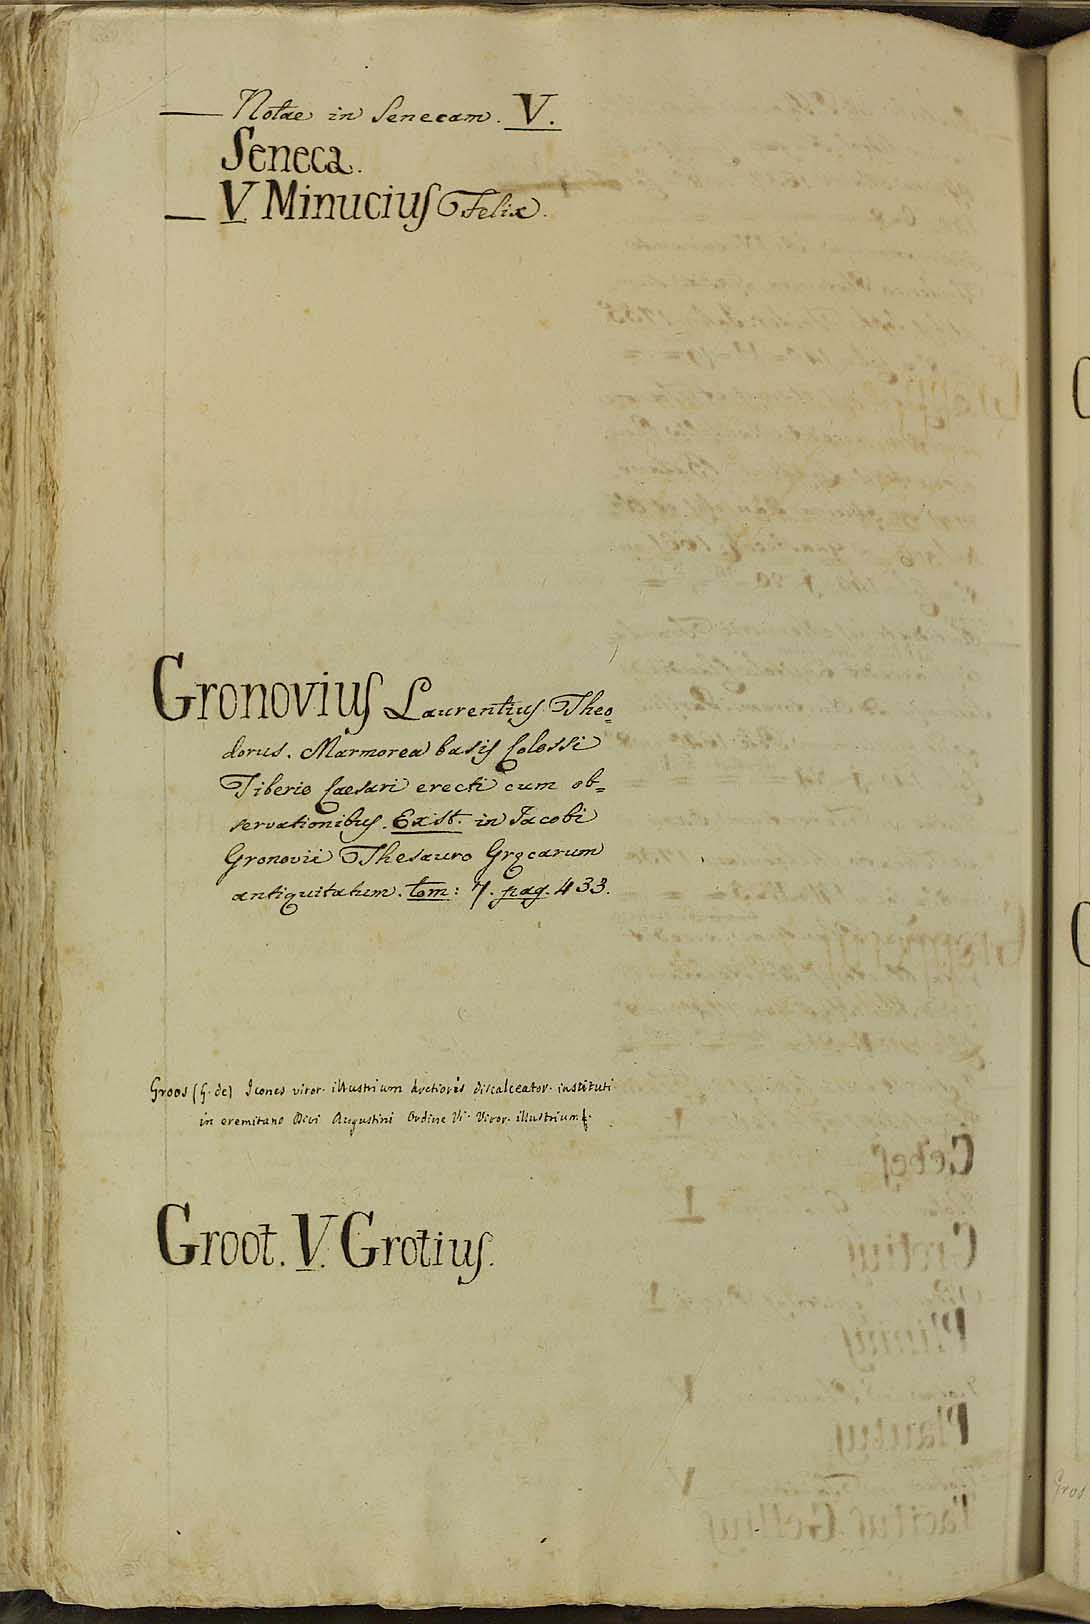 — Notae in Senecam. V.
Seneca.
— V Minucius Felix.
Gronovius Laurentius Theo=
dorus. Marmorea basis Colossi
Tiberio Caesari erecti cum ob=
servationibus. Exst. in Jacobi
Gronovii Thesauro Gręcarum
antiquitatum. tom: 7. pag. 433.
Groos (G. de) Icones viror. illustrium discalceator. instituti
in eremitano Divi Augustini Ordine Viror. illustrium
Groot. V. Grotius.
Gros